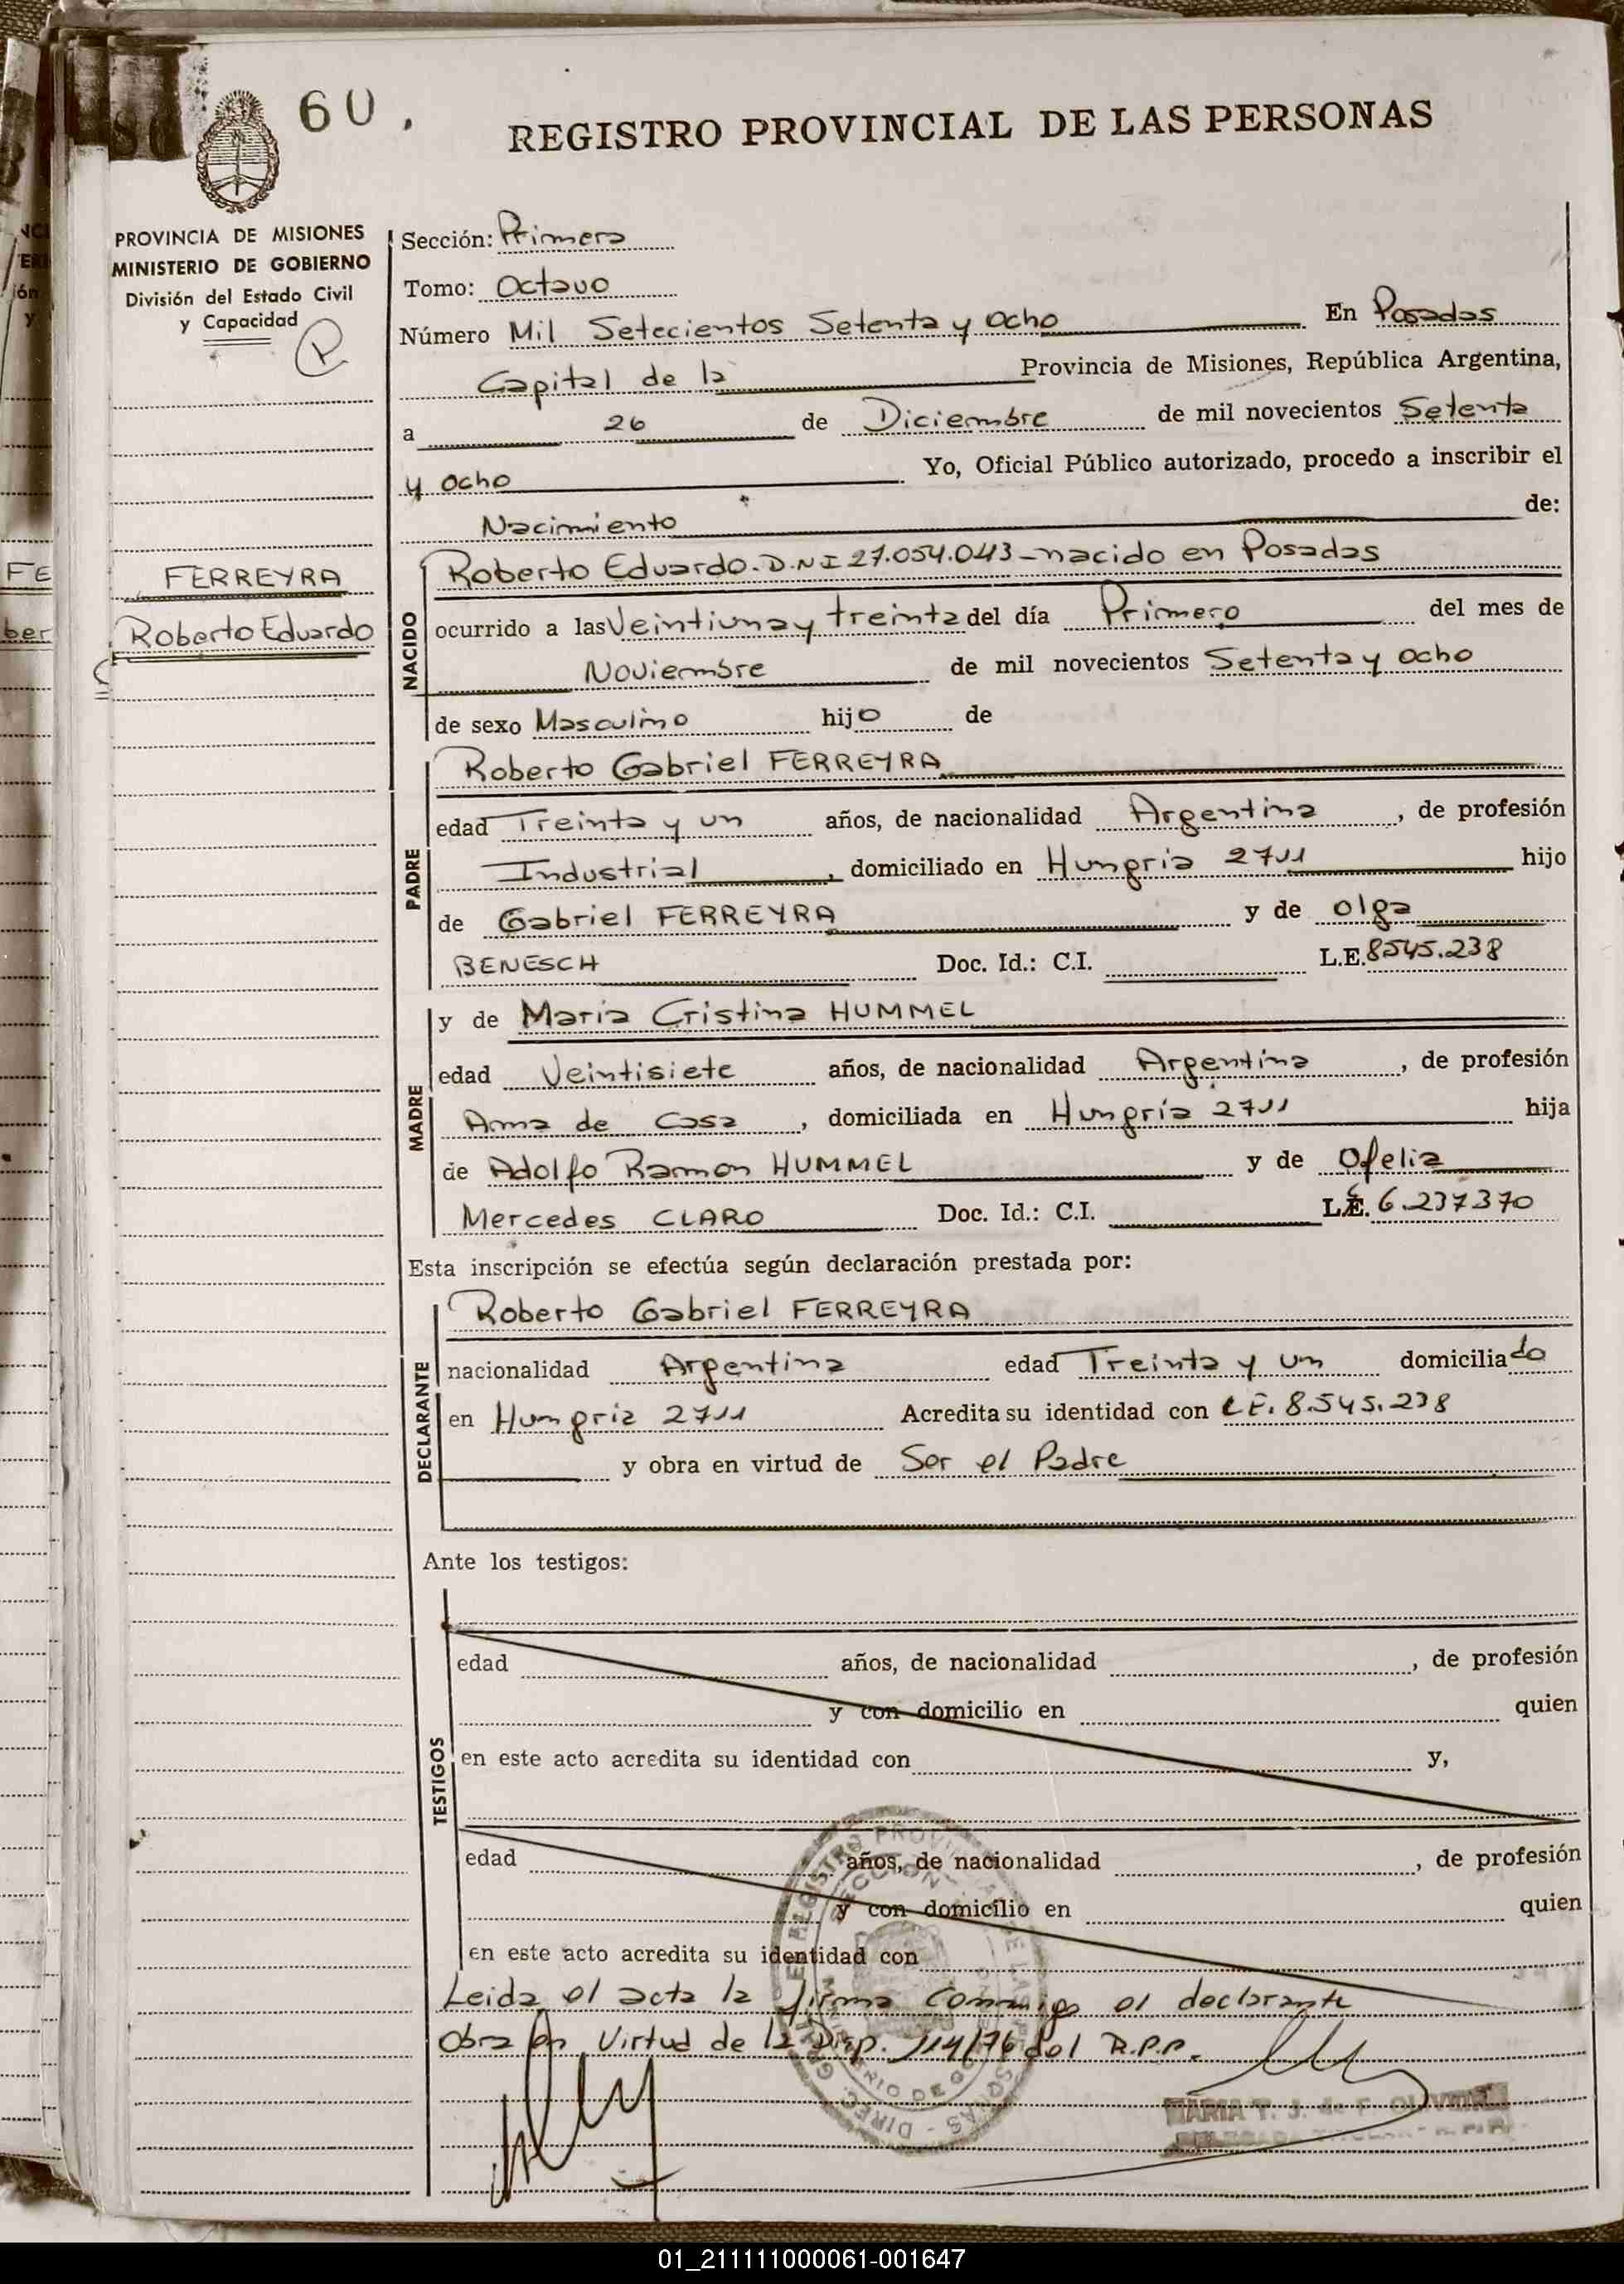 60.
REGISTRO PROVINCIAL DE LAS PERSONAS
PROVINCIA DE MISIONES
MINISTERIO DE GOBIERNO
División del Estado Civil
y Capacidad
R
FERREYRA
Roberto Eduardo
Sección: Primera
Tomo: Octavo
Número Mil Setecientos Setenta y Ocho En Posadas
Capital de la Provincia de Misiones, República Argentina,
a 26 de Diciembre de mil novecientos Setenta
y Ocho Yo, Oficial Público autorizado, procedo a inscribir el
Nacimiento de:
NACIDO
Roberto Eduardo. D.N.I 27.054.043 - nacido en Posadas
ocurrido a las Veintiuna y treinta del día Primero del mes de
Noviembre de mil novecientos Setenta y Ocho
de sexo Masculino hijo de
PADRE
Roberto Gabriel FERREYRA
edad Treinta y un años, de nacionalidad Argentina, de profesión
Industrial, domiciliado en Hungria 2711 hijo
de Gabriel FERREYRA y de Olga
BENESCH Doc. Id.: C.I. L.E. 8545.238
MADRE
y de Maria Cristina HUMMEL
edad Veintisiete años, de nacionalidad Argentina, de profesión
Ama de Casa, domiciliada en Hungría 2711 hija
de Adolfo Ramon HUMMEL y de Ofelia
Mercedes CLARO Doc. Id.: C.I. 6.237370
Esta inscripción se efectúa según declaración prestada por:
DECLARANTE
Roberto Gabriel FERREYRA
nacionalidad Argentina edad Treinta y un domiciliado
en Hungria 2711 Acredita su identidad con L.E. 8.545.238
y obra en virtud de Ser el Padre
Ante los testigos:
TESTIGOS
edad años, de nacionalidad , de profesión
y con domicilio en quien
en este acto acredita su identidad con y,
edad años, de nacionalidad , de profesión
y con domicilio en quien
en este acto acredita su identidad con
Leida el acta la firma conmigo el declarante
Obra en Virtud de la Disp. 114/76 del R.P.P.
MARIA T. J. de F.
01_211111000061-001647